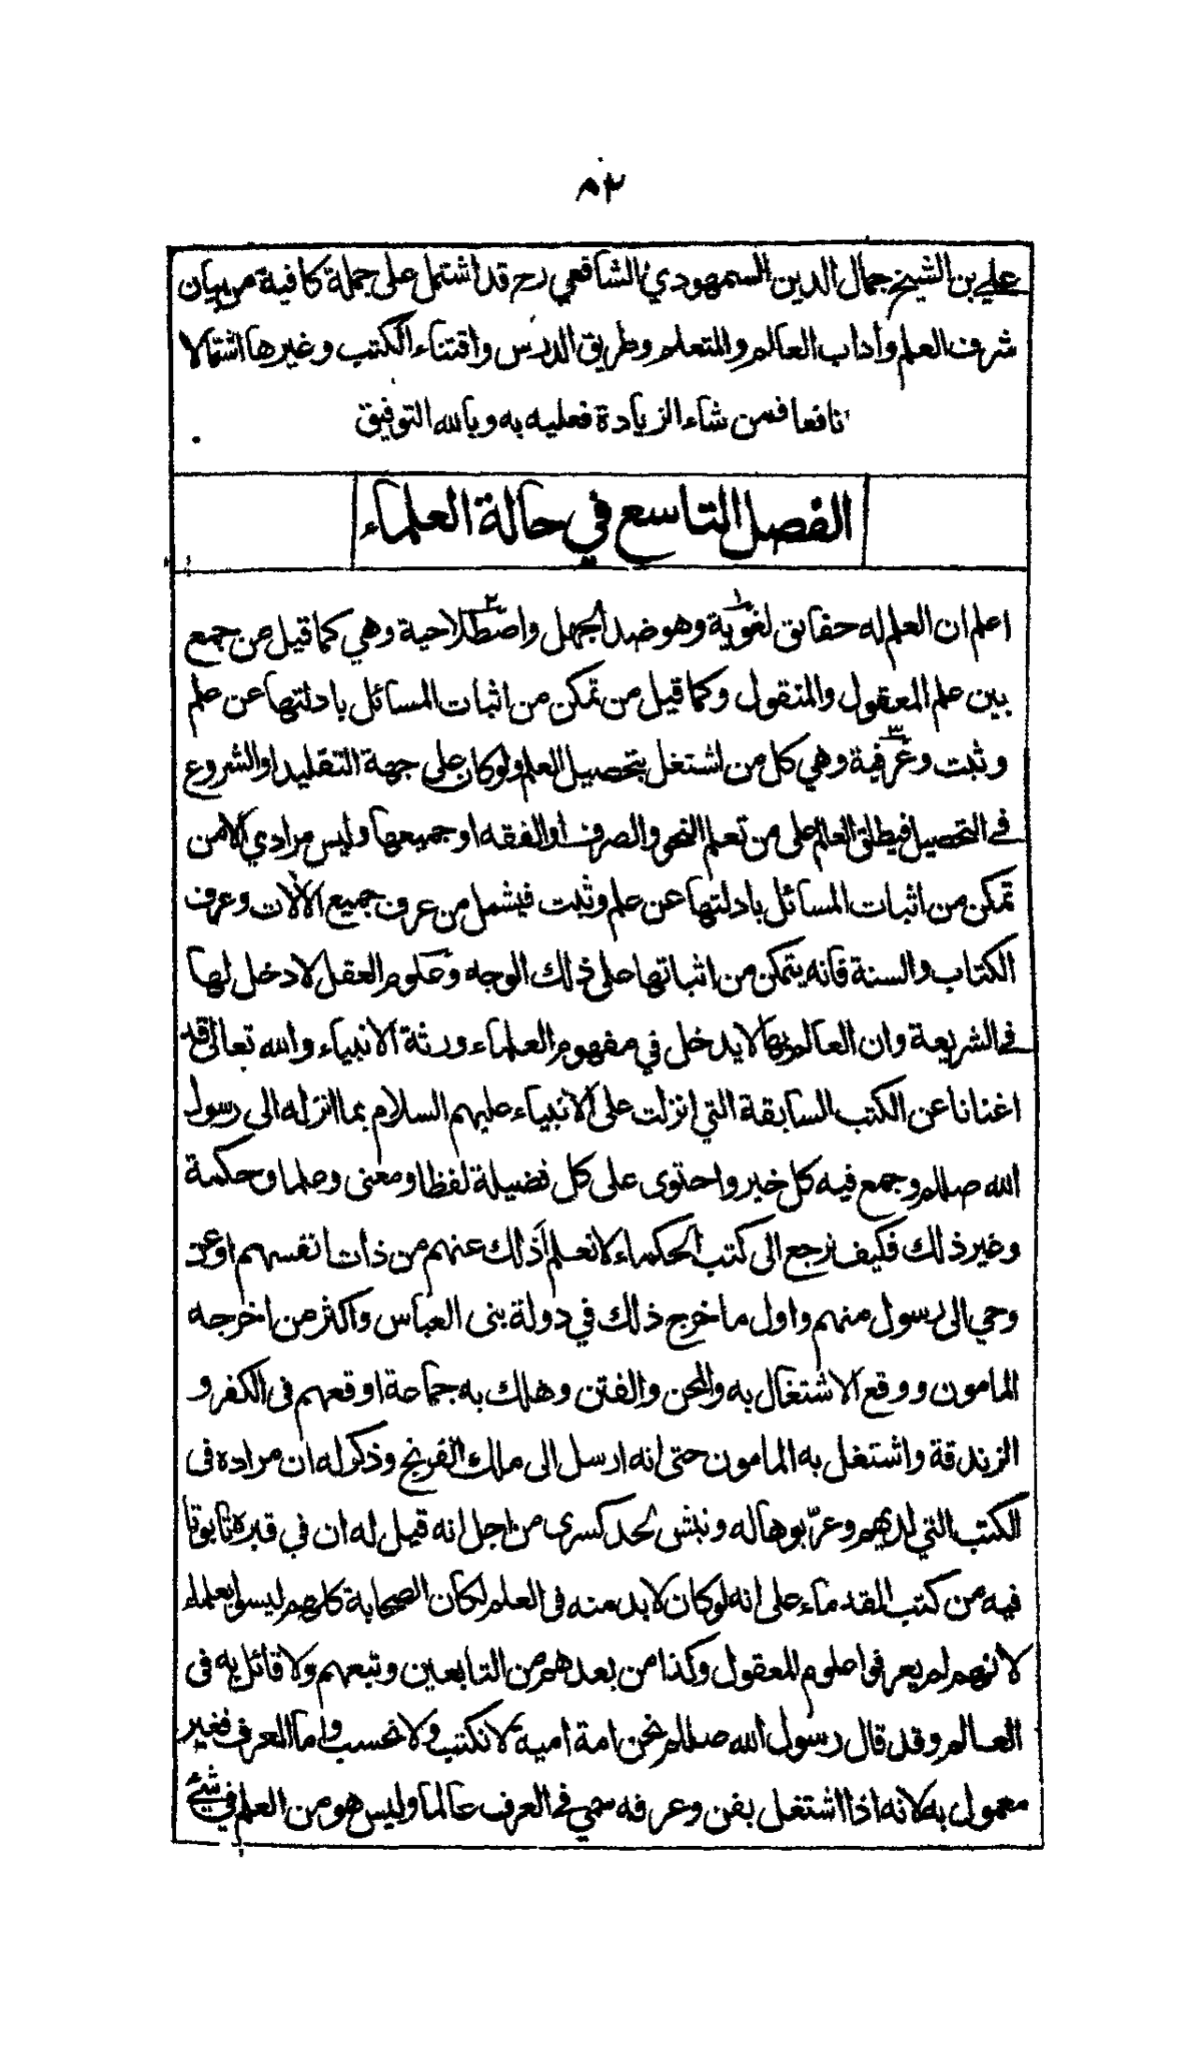 ٨٢
علي بن الشيخ جمال الدين السمهودي الشافعي رح قد اشتمل على جملة كافية من بيان
شرف العلم وآداب العالم والمتعلم وطريق الدرس واقتناء الكتب وغيرها اشتمالا
نافعا فمن شاء الزيادة فعليه به وبالله التوفيق
الفصل التاسع في حالة العلماء
اعلم ان العلم له حقائق لغوية ١ وهو ضد الجهل واصطلاحية ٢ وهي كما قيل من جمع
بين علم المعقول والمنقول وكما قيل من تمكن من اثبات المسائل بادلتها عن علم
وثبت وعرفية ٣ وهي كل من اشتغل بتحصيل العلم ولو كان على جهة التقليد او الشروع
في التحصيل فيطلق العالم على من تعلم النحو والصرف او الفقه او جميعها وليس مرادي الا من
تمكن من اثبات المسائل بادلتها عن علم وثبت فيشمل من عرف جميع الآلات وعرف
الكتاب والسنة فانه يتمكن من اثباتها على ذلك الوجه وعلوم العقل لا دخل لها
في الشريعة وان العالم بها لا يدخل في مفهوم العلماء ورثة الانبياء والله تعالى قد
اغنانا عن الكتب السابقة التي انزلت على الانبياء عليهم السلام بما انزله الى رسول
الله صللم وجمع فيه كل خير واحتوى على كل فضيلة لفظا ومعنى وعلما وحكمة
وغير ذلك فكيف نرجع الى كتب الحكماء لا نعلم أذلك عنهم من ذات انفسهم او عن
وحي الى رسول منهم واول ما خرج ذلك في دولة بنى العباس واكثر من اخرجه
المامون ووقع الاشتغال به والمحن والفتن وهلك به جماعة اوقعهم فى الكفر و
الزندقة واشتغل به المامون حتى انه ارسل الى ملك الفرنج وذكر له ان مراده فى
الكتب التي لديهم وعرّبوها له ونبش لحد كسرى من اجل انه قيل له ان في قبره تابوتا
فيه من كتب القدماء على انه لو كان لا بد منه فى العلم لكان الصحابة كلهم ليسوا بعلماء
لانهم لم يعرفوا علوم المعقول وكذا من بعدهم من التابعين وتبعهم ولا قائل به فى
العالم وقد قال رسول الله صللم نحن امة امية لا نكتب ولا نحسب واما العرف فغير
معمول به لانه اذا اشتغل بفن وعرفه سمي في العرف عالما وليس هو من العلم في شيء